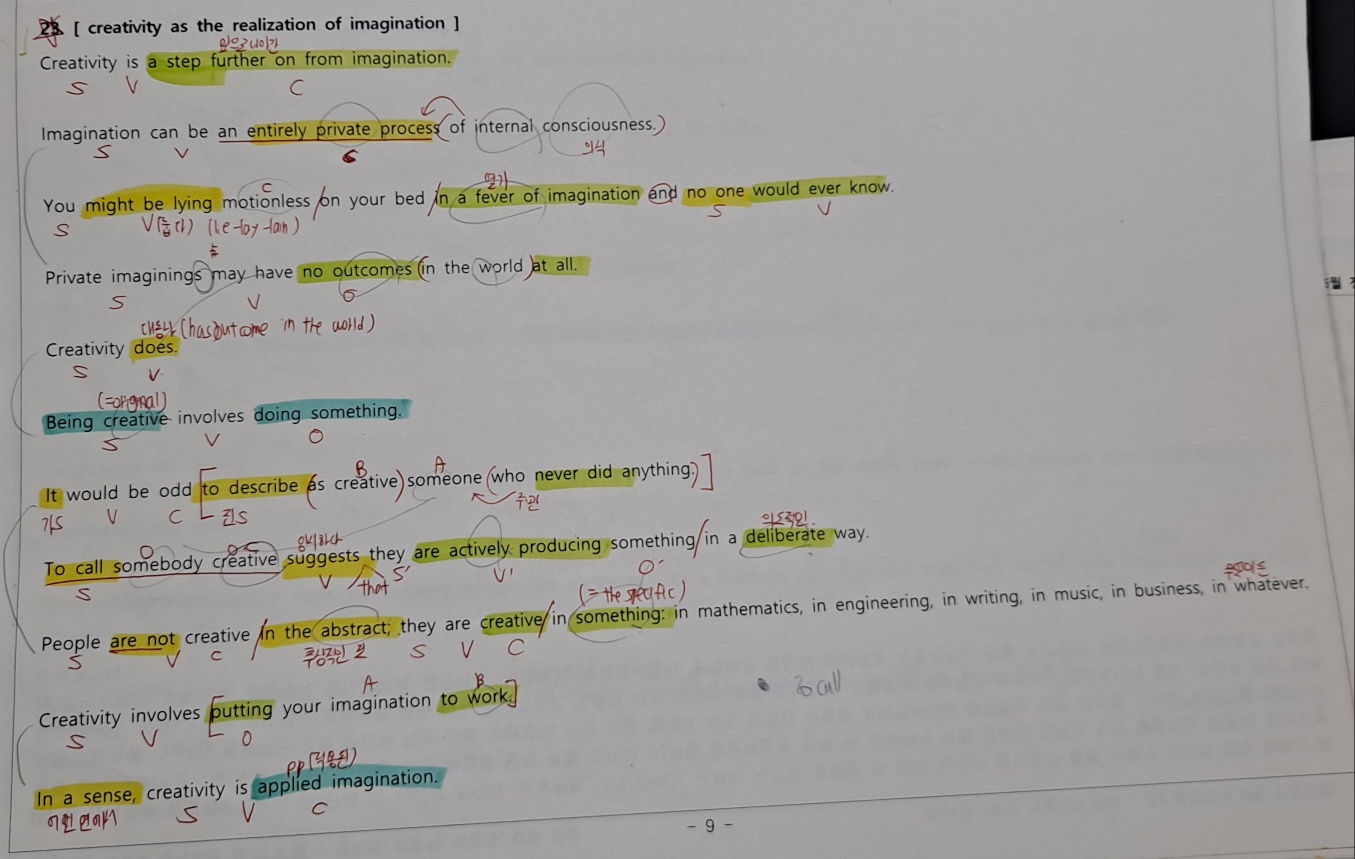 23. [ creativity as the realization of imagination ]
앞으로 나아간
Creativity is a step further on from imagination.
S V C
Imagination can be an entirely private process (of internal consciousness.)
S V C 의식
C 열기
You might be lying motionless / on your bed / in a fever of imagination and no one would ever know.
S V(눕다) (lie-lay-lain) S V
Private imaginings may have no outcomes (in the world) at all.
S V O
대동사 (has outcome in the world)
Creativity does.
S V
(=original)
Being creative involves doing something.
S V O
B A
It would be odd [to describe (as creative) someone (who never did anything.)]
가S V C 진S 주관
O OC 암시하다 의도적인
To call somebody creative suggests they are actively producing something / in a deliberate way.
S V that S' V' O'
(= the specific) 무엇이든
People are not creative / in the abstract; they are creative / in something: in mathematics, in engineering, in writing, in music, in business, in whatever.
S V C 추상적인 것 S V C
A B to call
Creativity involves [putting your imagination to work.]
S V O
pp(적용된)
In a sense, creativity is applied imagination.
어떤 면에서 S V C
- 9 -